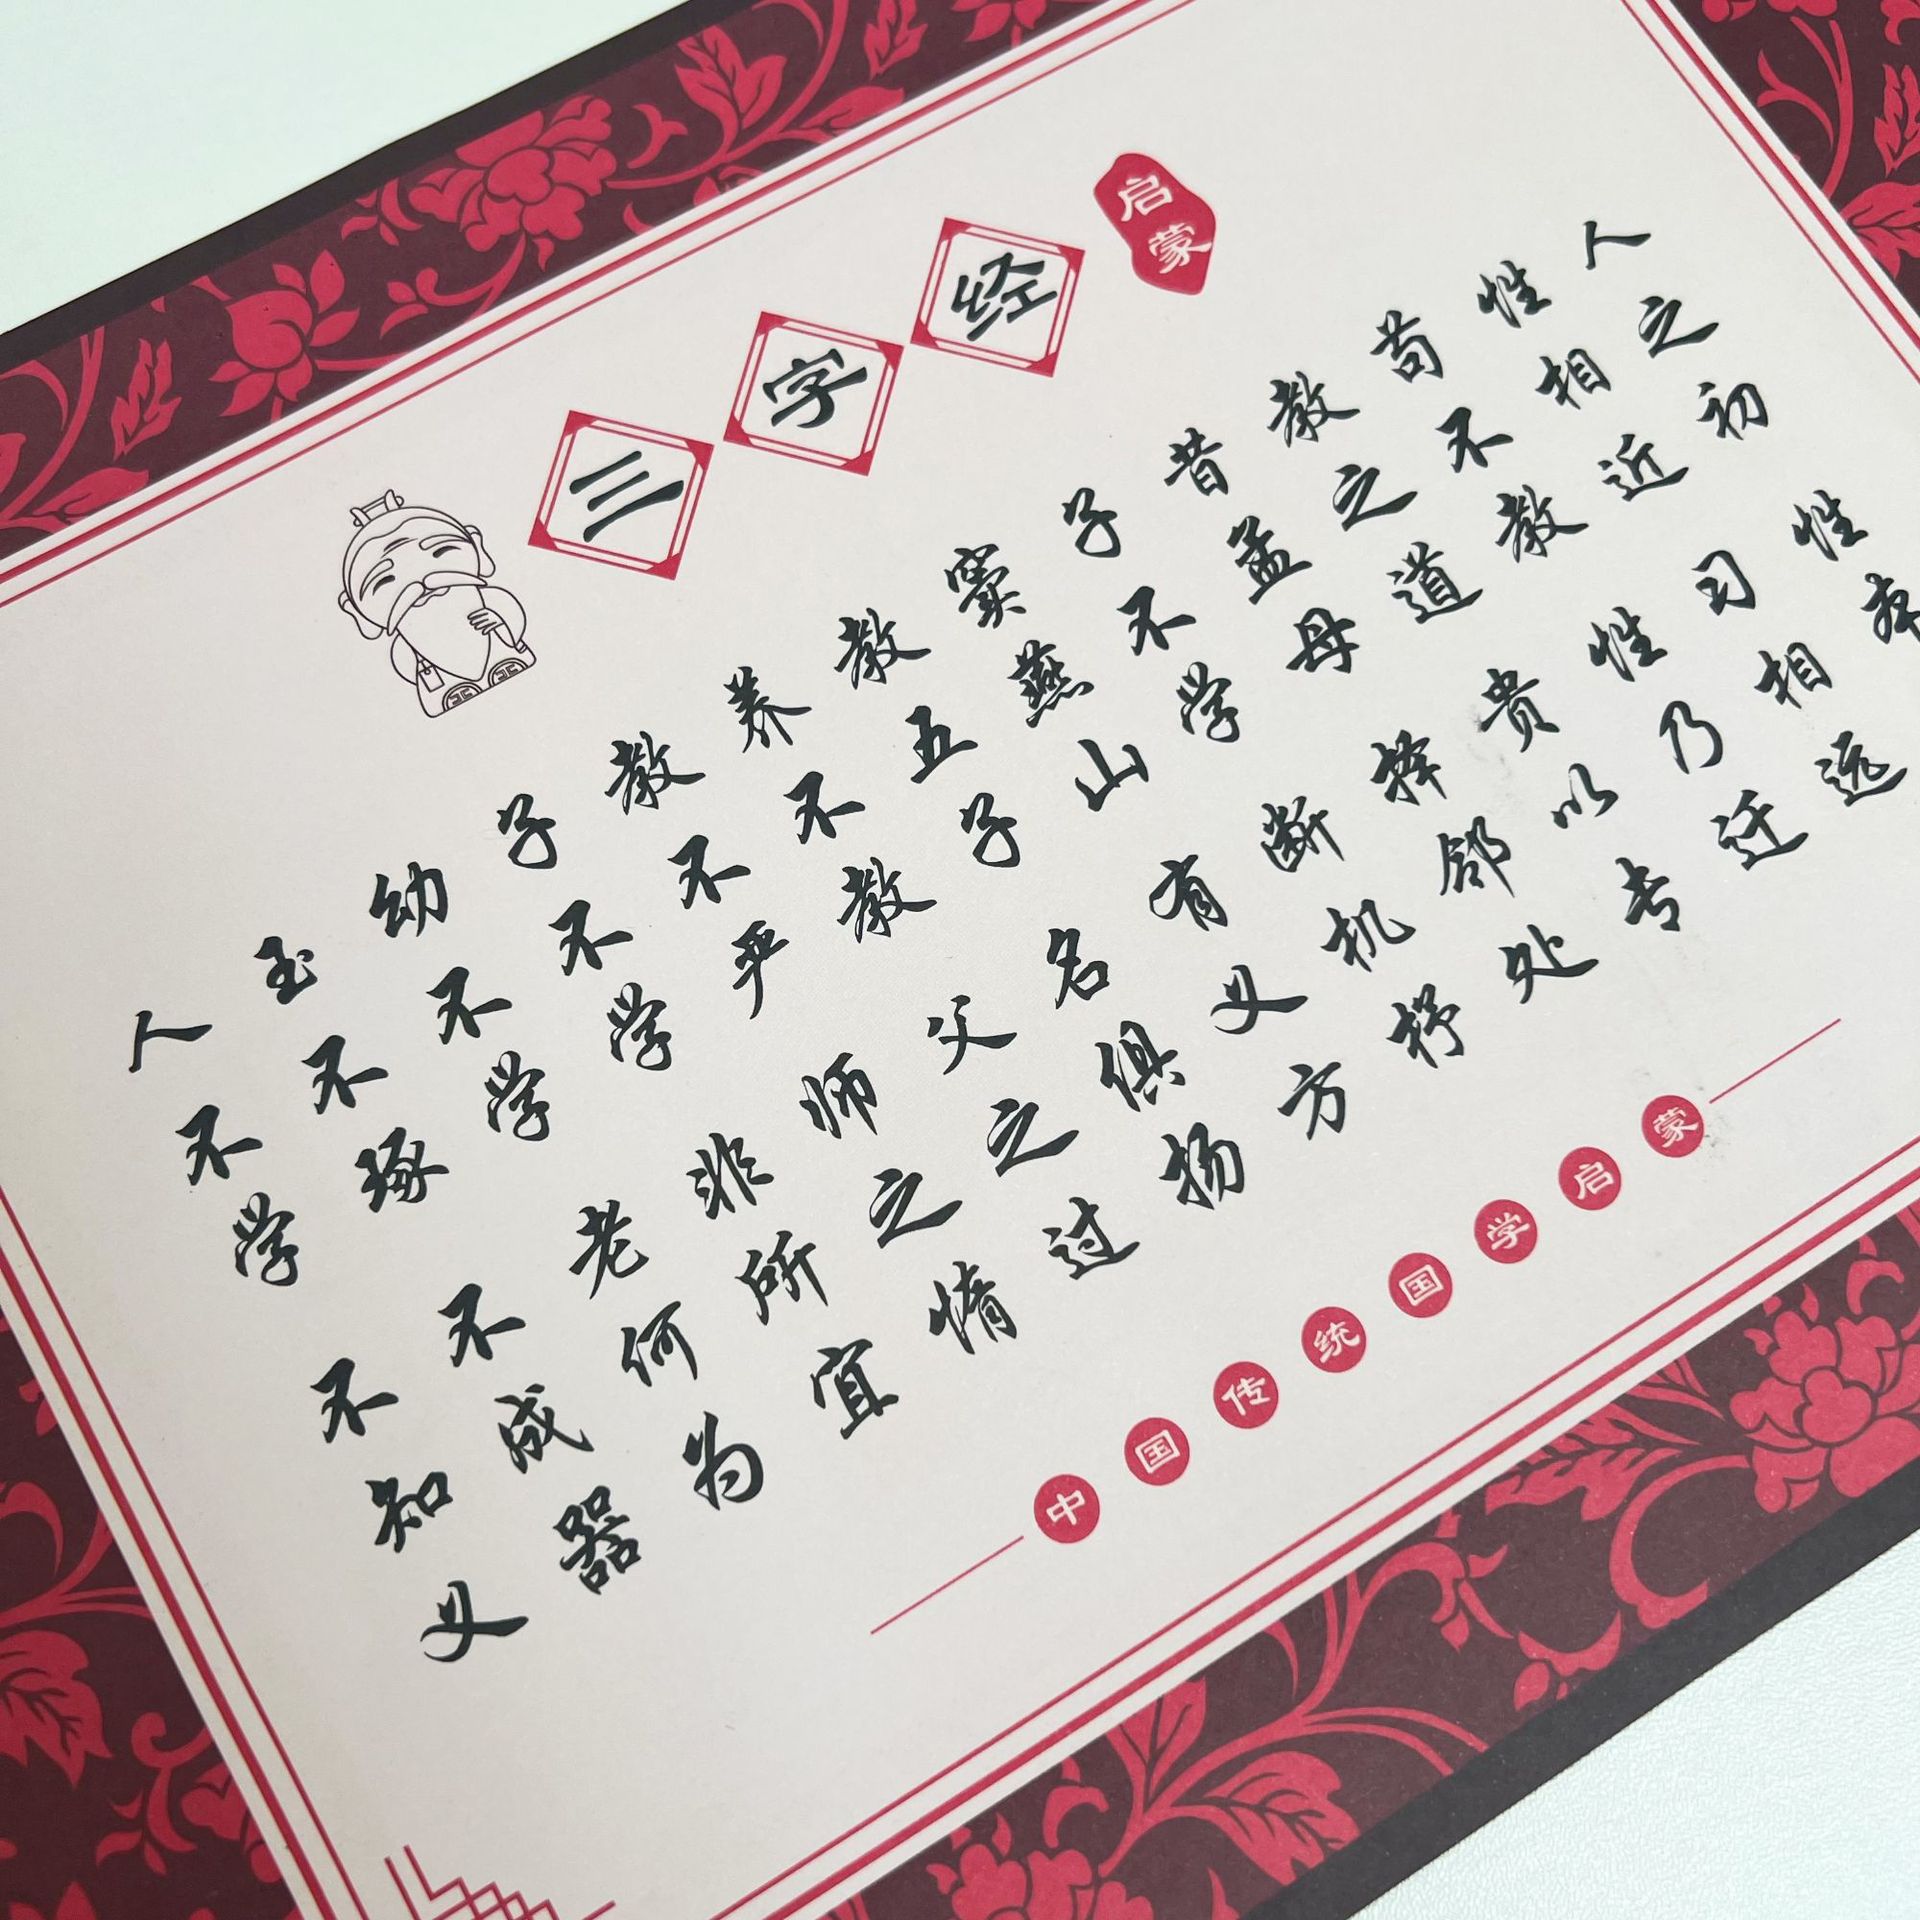 三字经
启蒙
人之初 性本
性相近 习相远
苟不教 性乃迁
教之道 贵以专
昔孟母 择邻处
子不学 断机杼
窦燕山 有义方
教五子 名俱扬
养不教 父之过
教不严 师之惰
子不学 非所宜
幼不学 老何为
玉不琢 不成器
人不学 不知义
中国传统国学启蒙